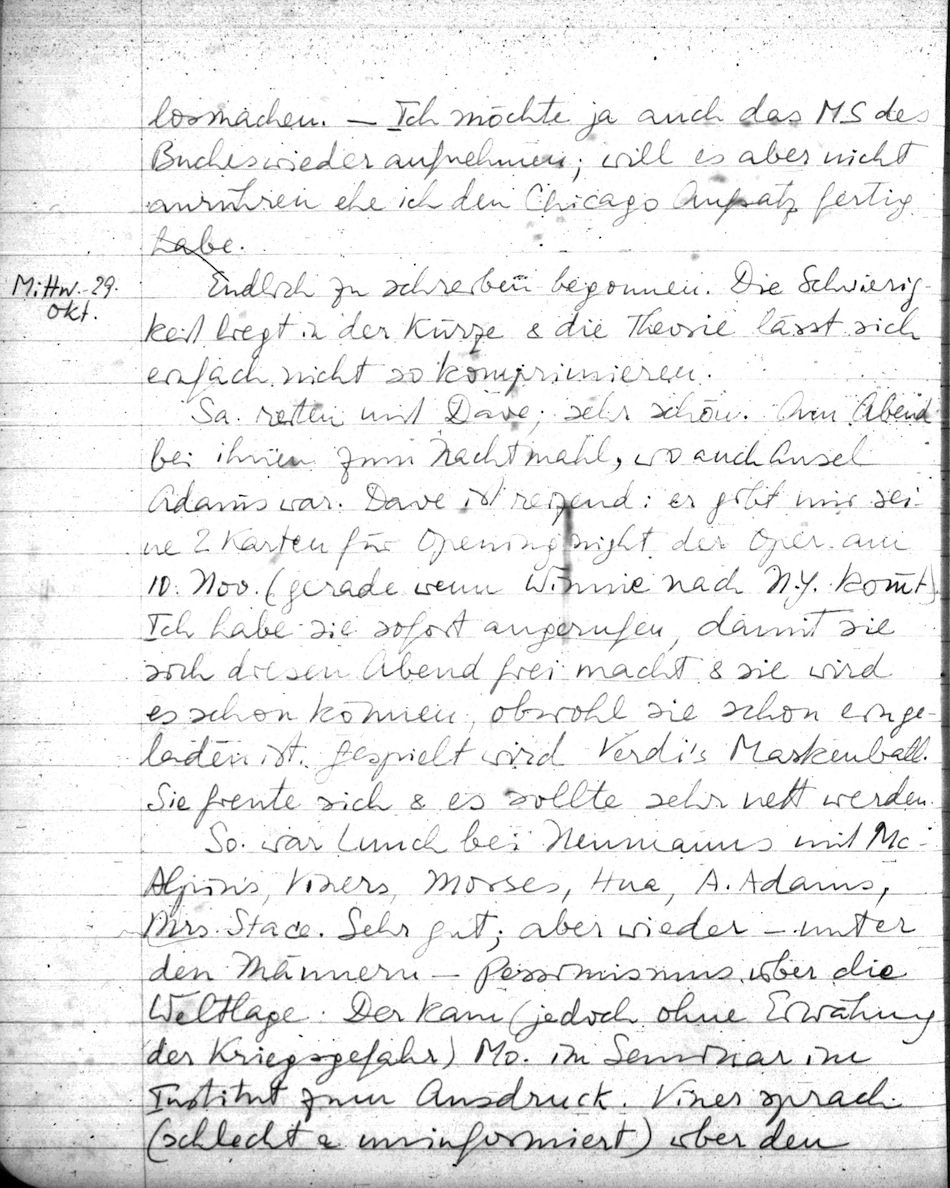 losmachen. — Ich möchte ja auch das MS des
Buches wieder aufnehmen; will es aber nicht
anrühren ehe ich den Chicago Aufsatz fertig
habe.
Mittw. 29.
Okt.
Endlich zu schreiben begonnen. Die Schwierig-
keit liegt in der Kürze & die Theorie lässt sich
einfach nicht so komprimieren.
Sa. reiten mit Dave; sehr schön. Am Abend
bei ihnen zum Nachtmahl, wo auch Ansel
Adams war. Dave ist reizend: er gibt mir sei-
ne 2 Karten für Opening night der Oper am
10. Nov. (gerade wenn Winnie nach N.Y. kom̄t)
Ich habe sie sofort angerufen, damit sie
sich diesen Abend frei macht & sie wird
es schon können, obwohl sie schon einge-
laden ist. Gespielt wird Verdi's Maskenball.
Sie freute sich & es sollte sehr nett werden.
So. war Lunch bei Neumanns mit Mc-
Alpins, Viners, Morses, Hua, A. Adams,
Mrs. Stace. Sehr gut; aber wieder – unter
den Männern – Pessimismus über die
Weltlage. Der kam (jedoch ohne Erwähnung
der Kriegsgefahr) Mo. im Seminar im
Institut zum Ausdruck. Viner sprach
(schlecht & uninformiert) über den